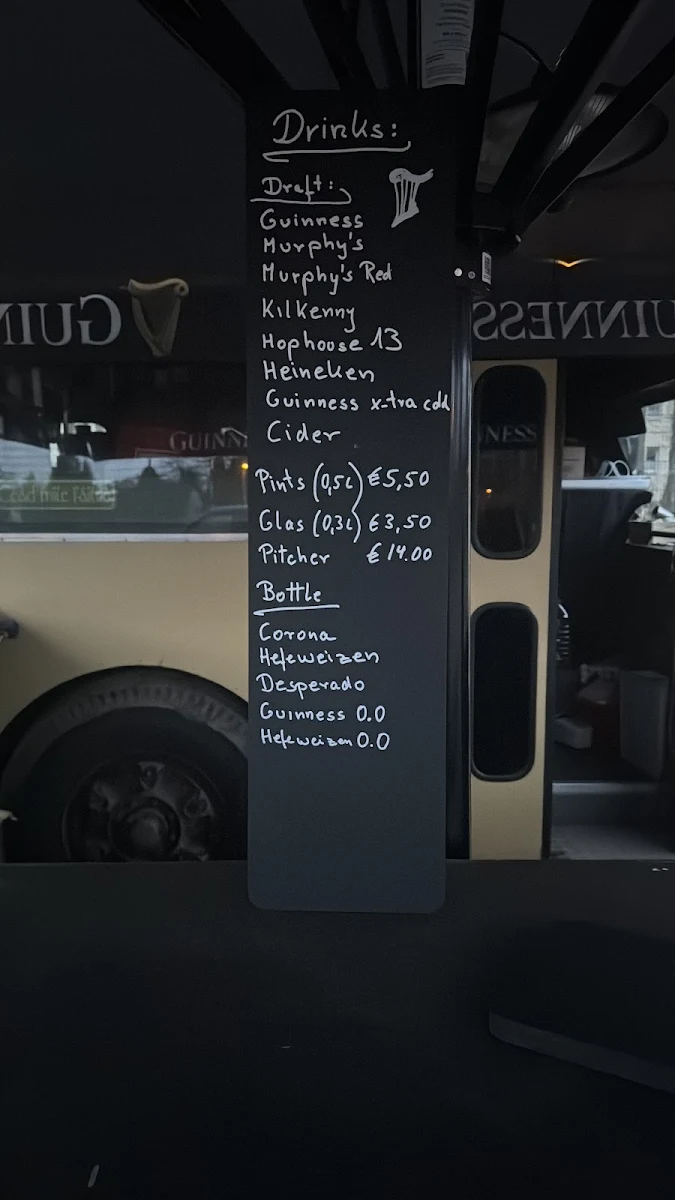 Drinks:
Draft:
Guinness
Murphy's
Murphy's Red
Kilkenny
Hophoose 13
Heineken
Guinness x-tra cold
Cider
Pints (0,5L) €5,50
Glas (0,3L) €3,50
Pitcher €14.00
Bottle
Corona
Hefeweizen
Desperado
Guinness 0.0
Hefeweizen 0.0
GUIN
UINNESS
GUINN
NESS